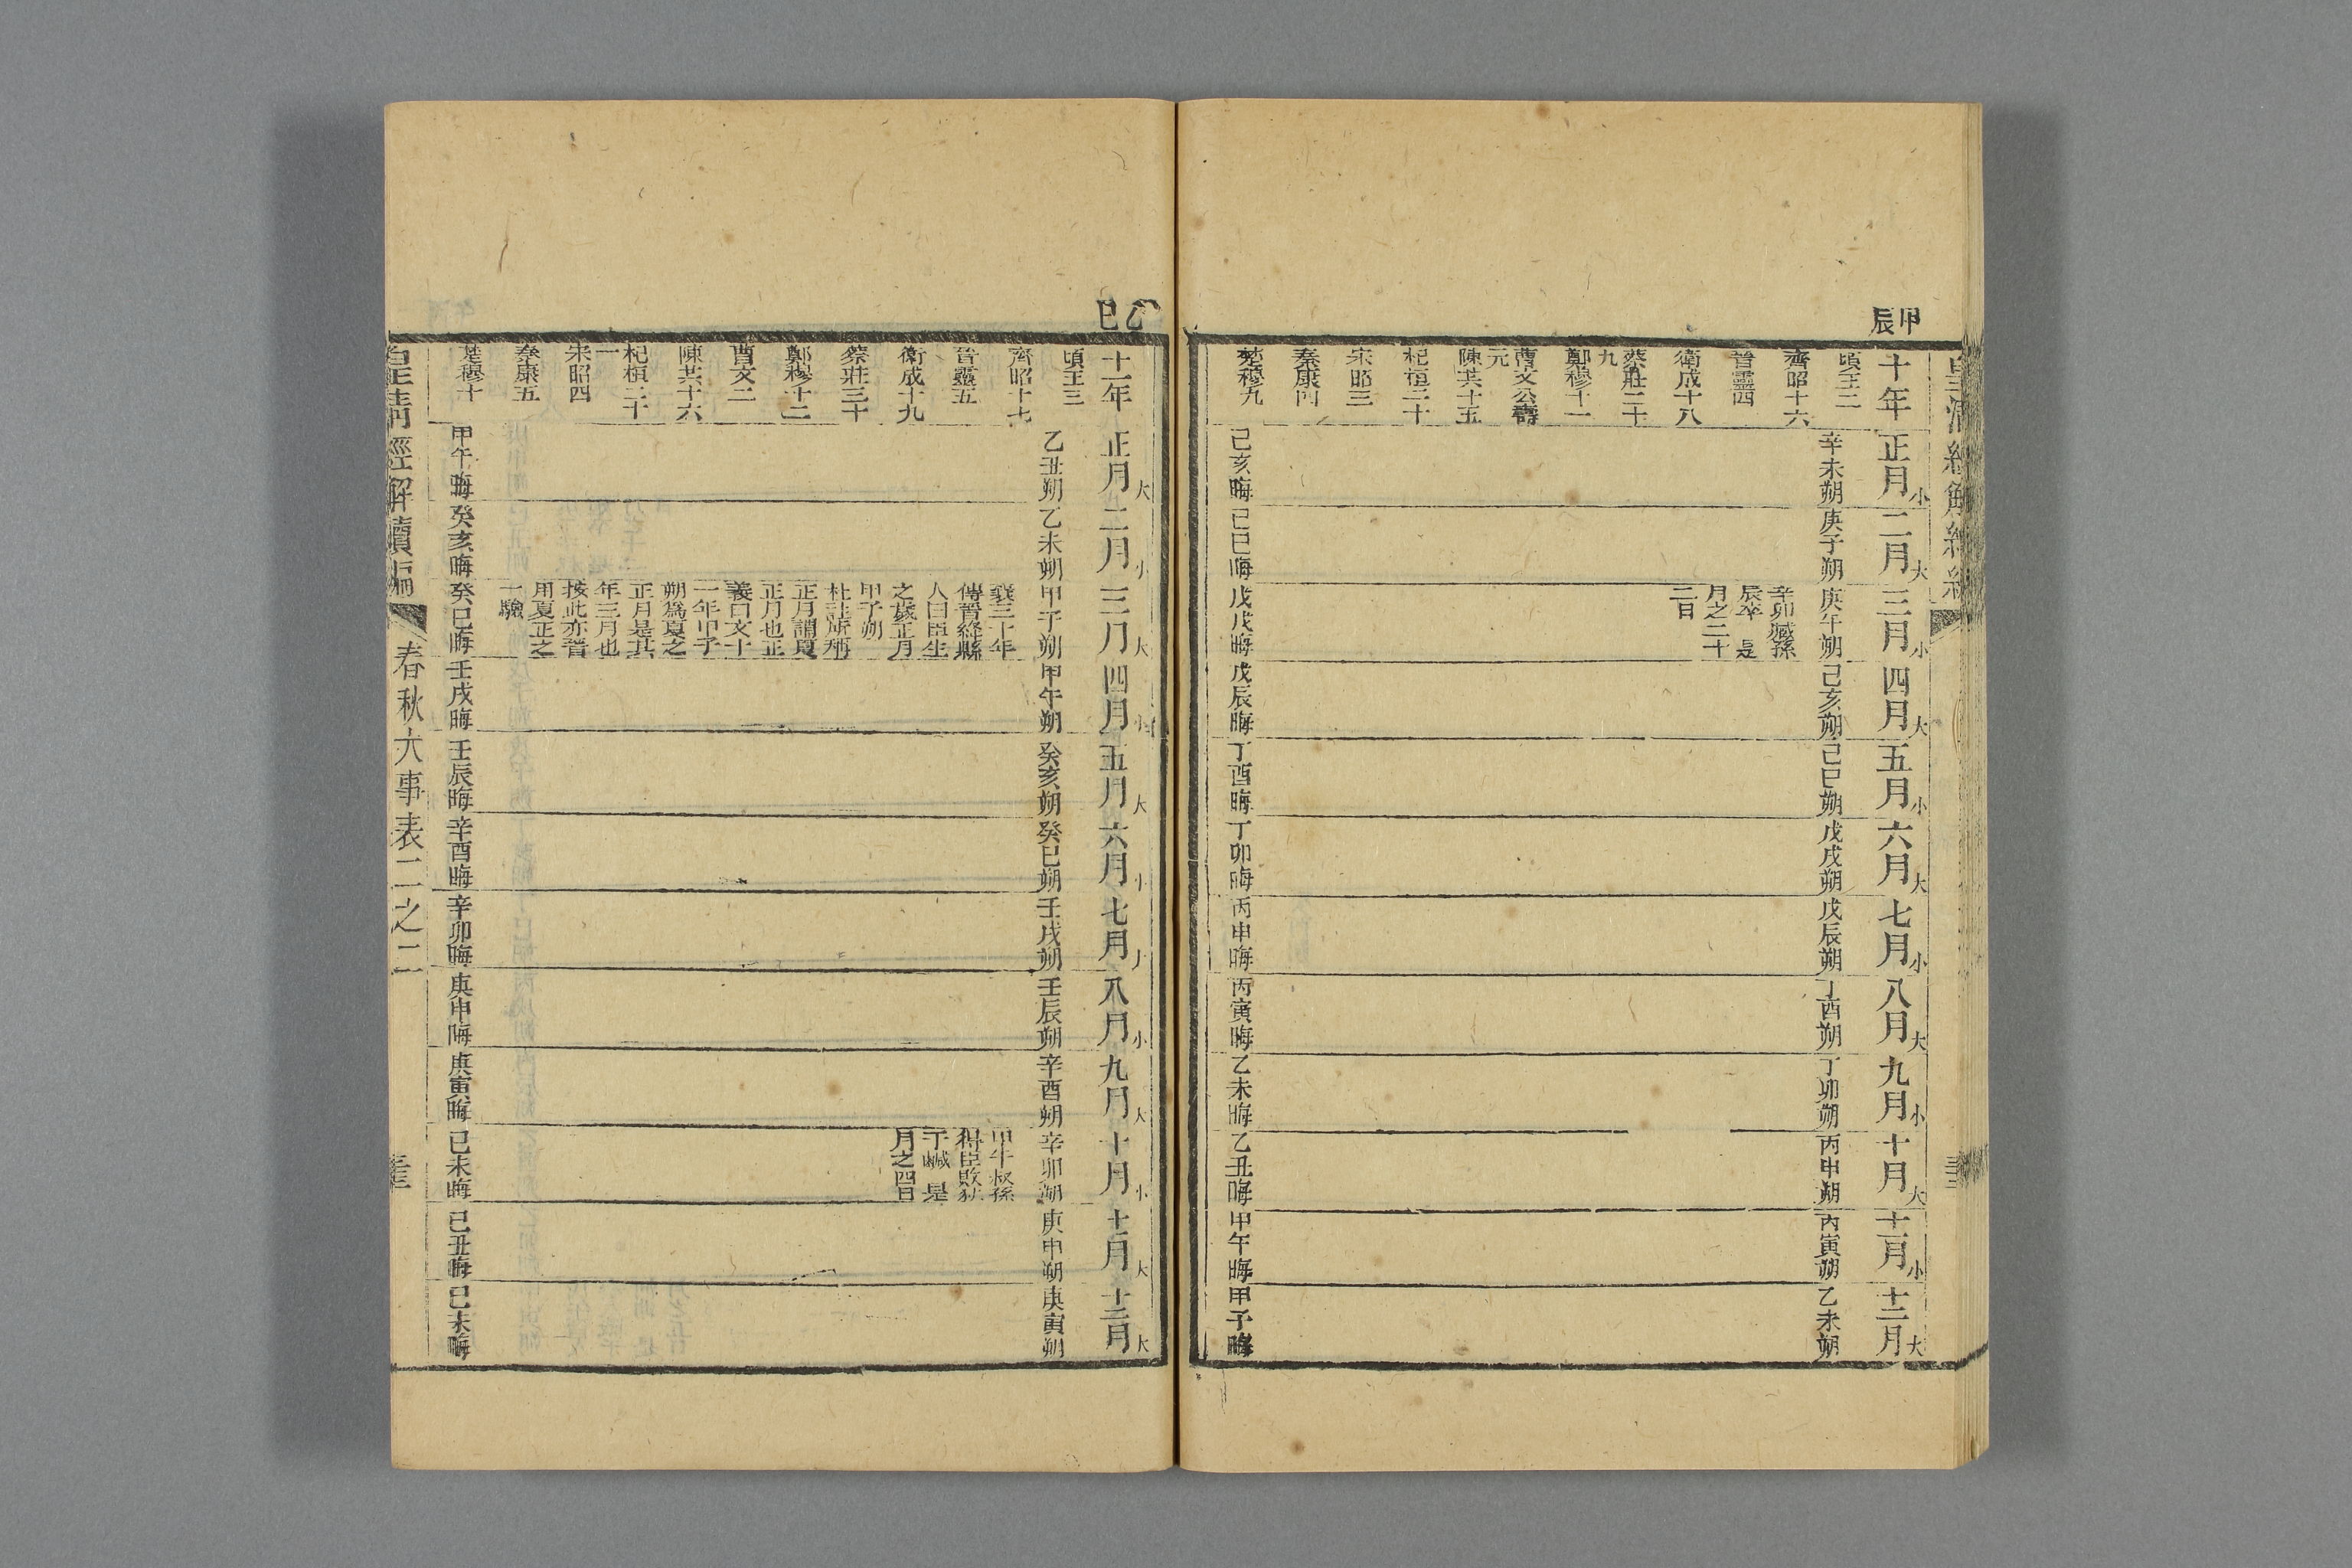 皇清經解續編
甲辰
十年
頃王二
齊昭十六
晉靈四
衛成十八
蔡莊二十
九
鄭穆十一
曹文公壽
元
陳共十五
杞桓二十
宋昭三
秦康四
楚穆九
正月小
辛未朔
己亥晦
二月大
庚子朔
己巳晦
三月小
庚午朔
辛卯臧孫
辰卒 是
月之二十
二日
戊戌晦
四月大
己亥朔
戊辰晦
五月小
己巳朔
丁酉晦
六月大
戊戌朔
丁卯晦
七月小
戊辰朔
丙申晦
八月大
丁酉朔
丙寅晦
九月小
丁卯朔
乙未晦
十月大
丙申朔
乙丑晦
十一月小
丙寅朔
甲午晦
十二月大
乙未朔
甲子晦
乙巳
十一年
頃王三
齊昭十七
晉靈五
衛成十九
蔡莊三十
鄭穆十二
曹文二
陳共十六
杞桓二十
一
宋昭四
秦康五
楚穆十
正月大
乙丑朔
甲午晦
二月小
乙未朔
癸亥晦
三月大
甲子朔
襄三十年
傳晉絳縣
人曰臣生
之歲正月
甲子朔
杜註所稱
正月謂夏
正月也正
義曰文十
一年甲子
朔爲夏之
正月是其
年三月也
按此亦晉
用夏正之
一驗
癸巳晦
四月小
甲午朔
壬戌晦
五月大
癸亥朔
壬辰晦
六月小
癸巳朔
辛酉晦
七月大
壬戌朔
辛卯晦
八月小
壬辰朔
庚申晦
九月大
辛酉朔
庚寅晦
十月小
辛卯朔
甲午叔孫
得臣敗狄
于鹹 是
月之四日
己未晦
十一月大
庚申朔
己丑晦
十二月大
庚寅朔
己未晦
皇清經解續編
春秋大事表二之二